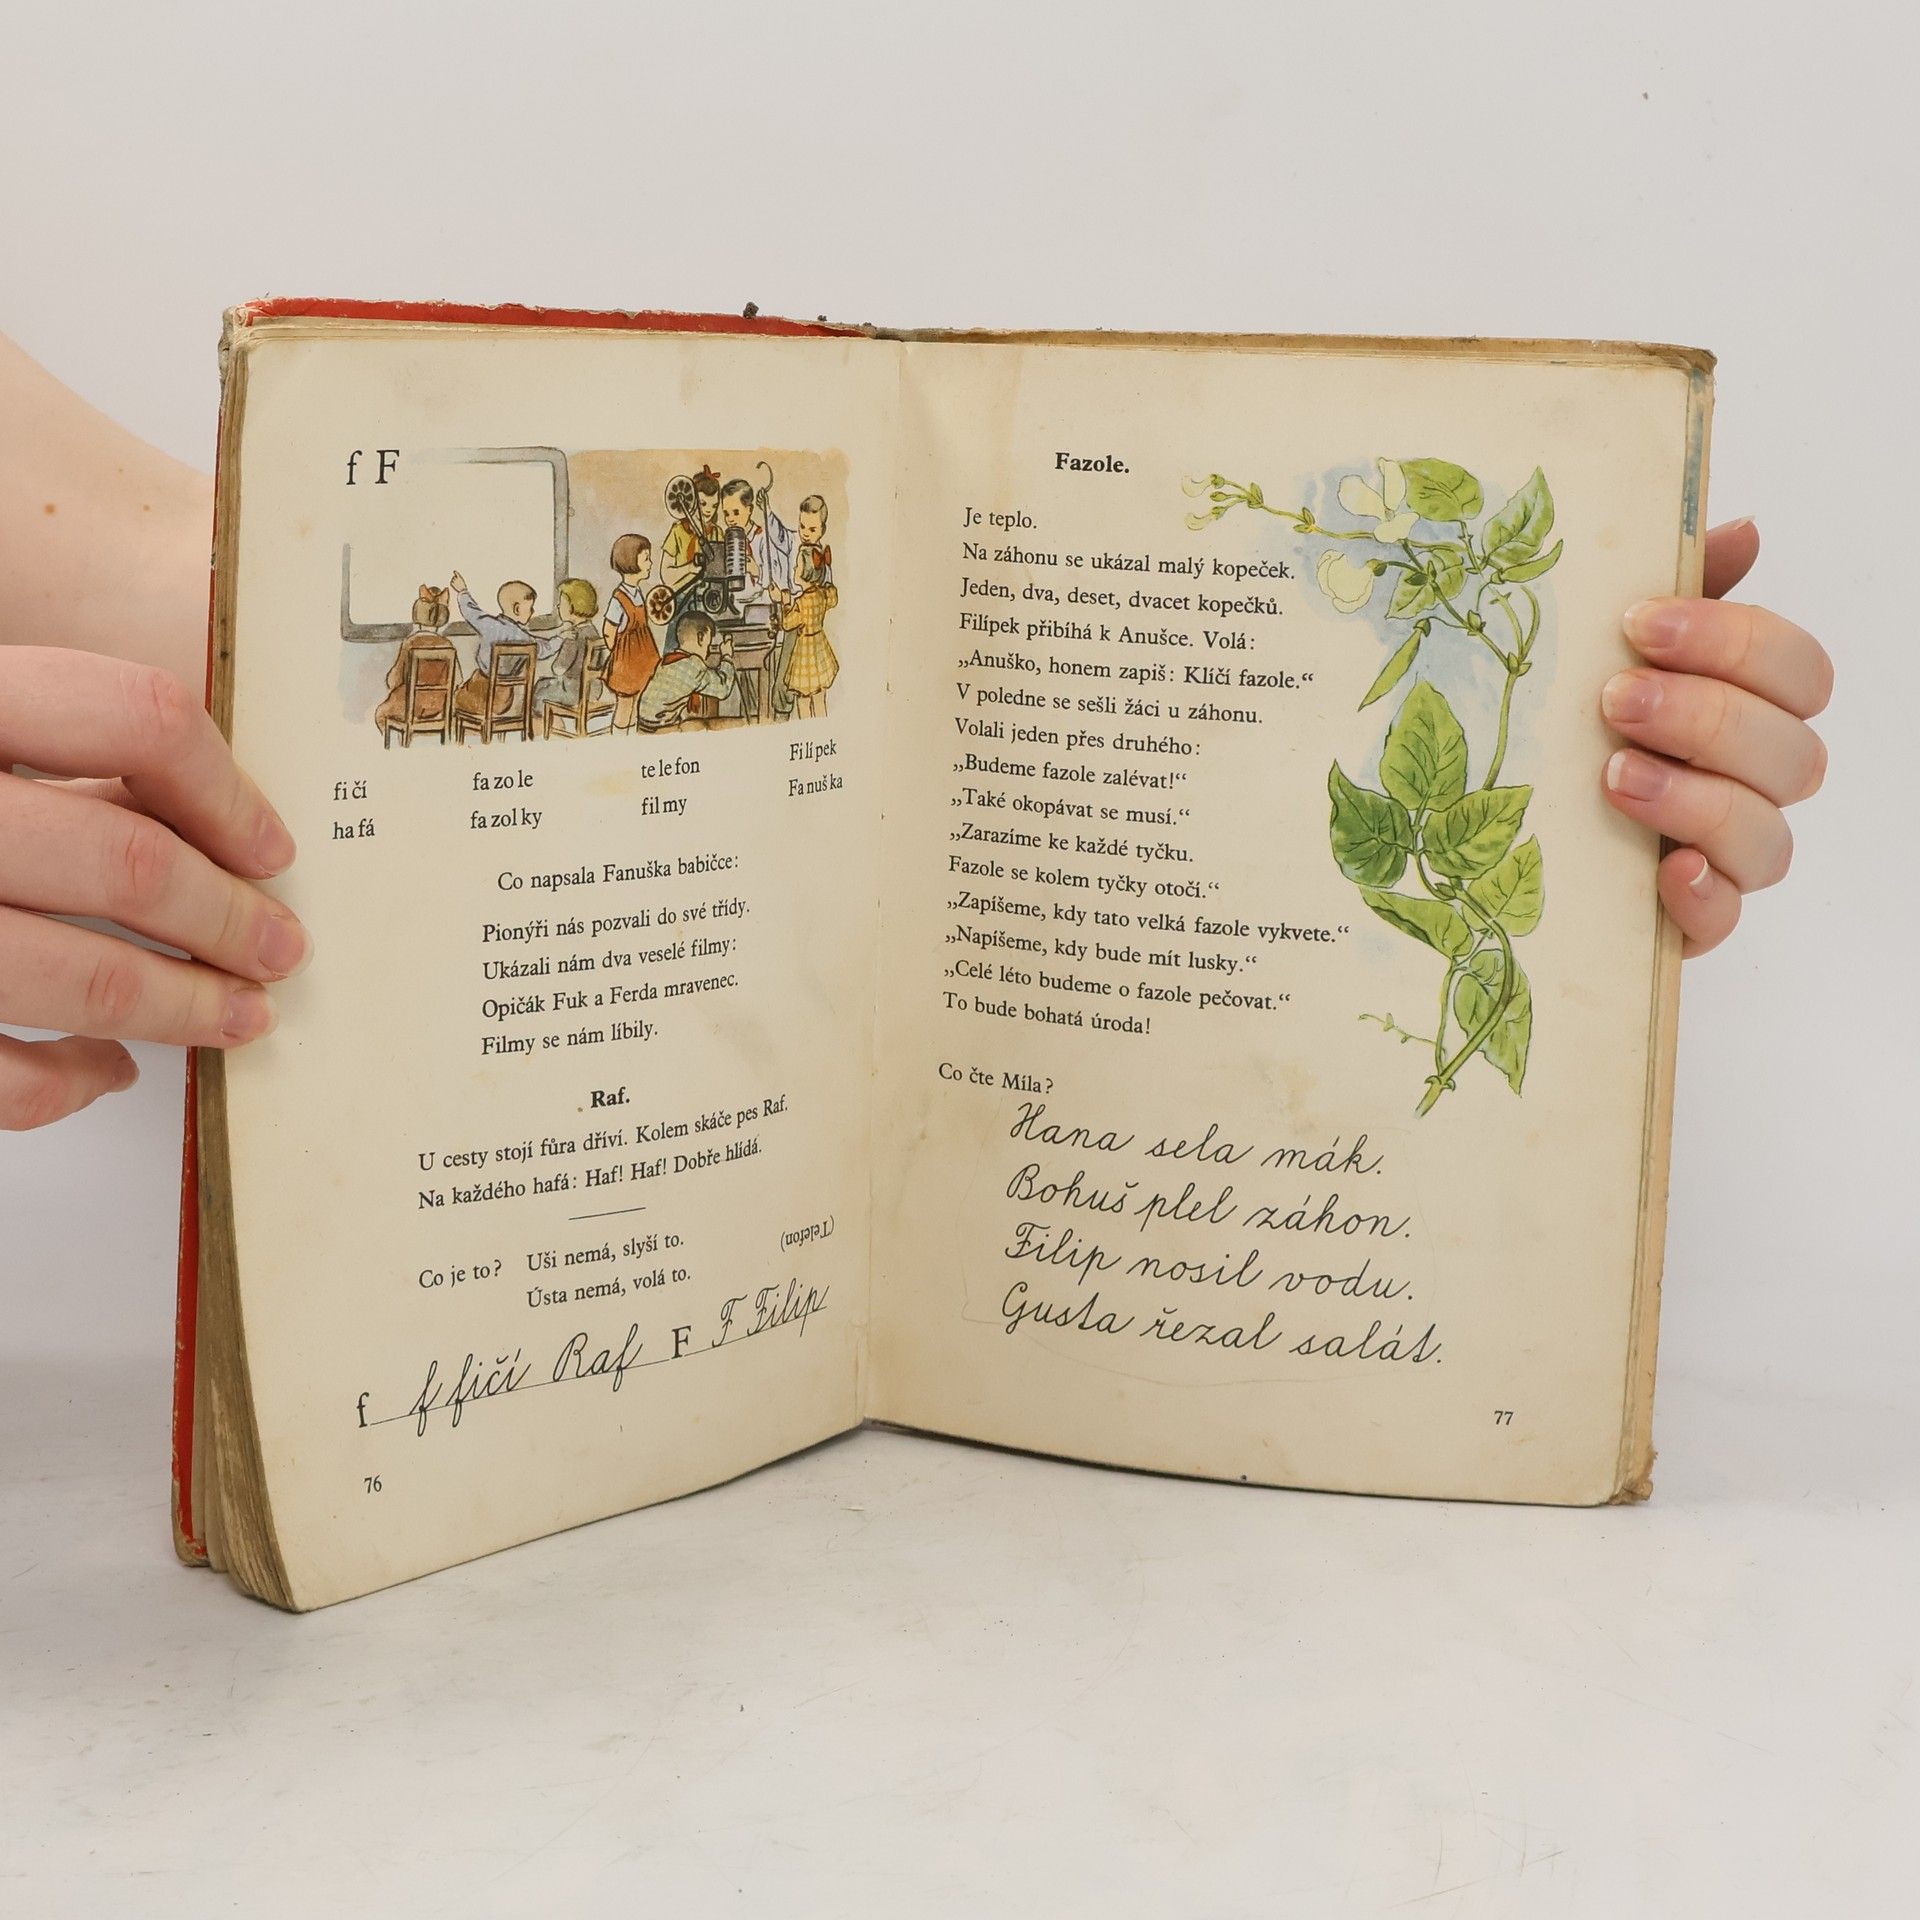 f F
fi čí fa zo le te le fon Fi lí pek
ha fá fa zol ky fil my Fa nuš ka
Co napsala Fanuška babičce:
Pionýři nás pozvali do své třídy.
Ukázali nám dva veselé filmy:
Opičák Fuk a Ferda mravenec.
Filmy se nám líbily.
Raf.
U cesty stojí fůra dříví. Kolem skáče pes Raf.
Na každého hafá: Haf! Haf! Dobře hlídá.
Co je to? Uši nemá, slyší to.
Ústa nemá, volá to.
(Telefon)
f f fičí Raf F F Filip
76
Fazole.
Je teplo.
Na záhonu se ukázal malý kopeček.
Jeden, dva, deset, dvacet kopečků.
Filípek přibíhá k Anušce. Volá:
„Anuško, honem zapiš: Klíčí fazole.“
V poledne se sešli žáci u záhonu.
Volali jeden přes druhého:
„Budeme fazole zalévat!“
„Také okopávat se musí.“
„Zarazíme ke každé tyčku.
Fazole se kolem tyčky otočí.“
„Zapíšeme, kdy tato velká fazole vykvete.“
„Napíšeme, kdy bude mít lusky.“
„Celé léto budeme o fazole pečovat.“
To bude bohatá úroda!
Co čte Míla?
Hana sela mák.
Bohuš plel záhon.
Filip nosil vodu.
Gusta řezal salát.
77